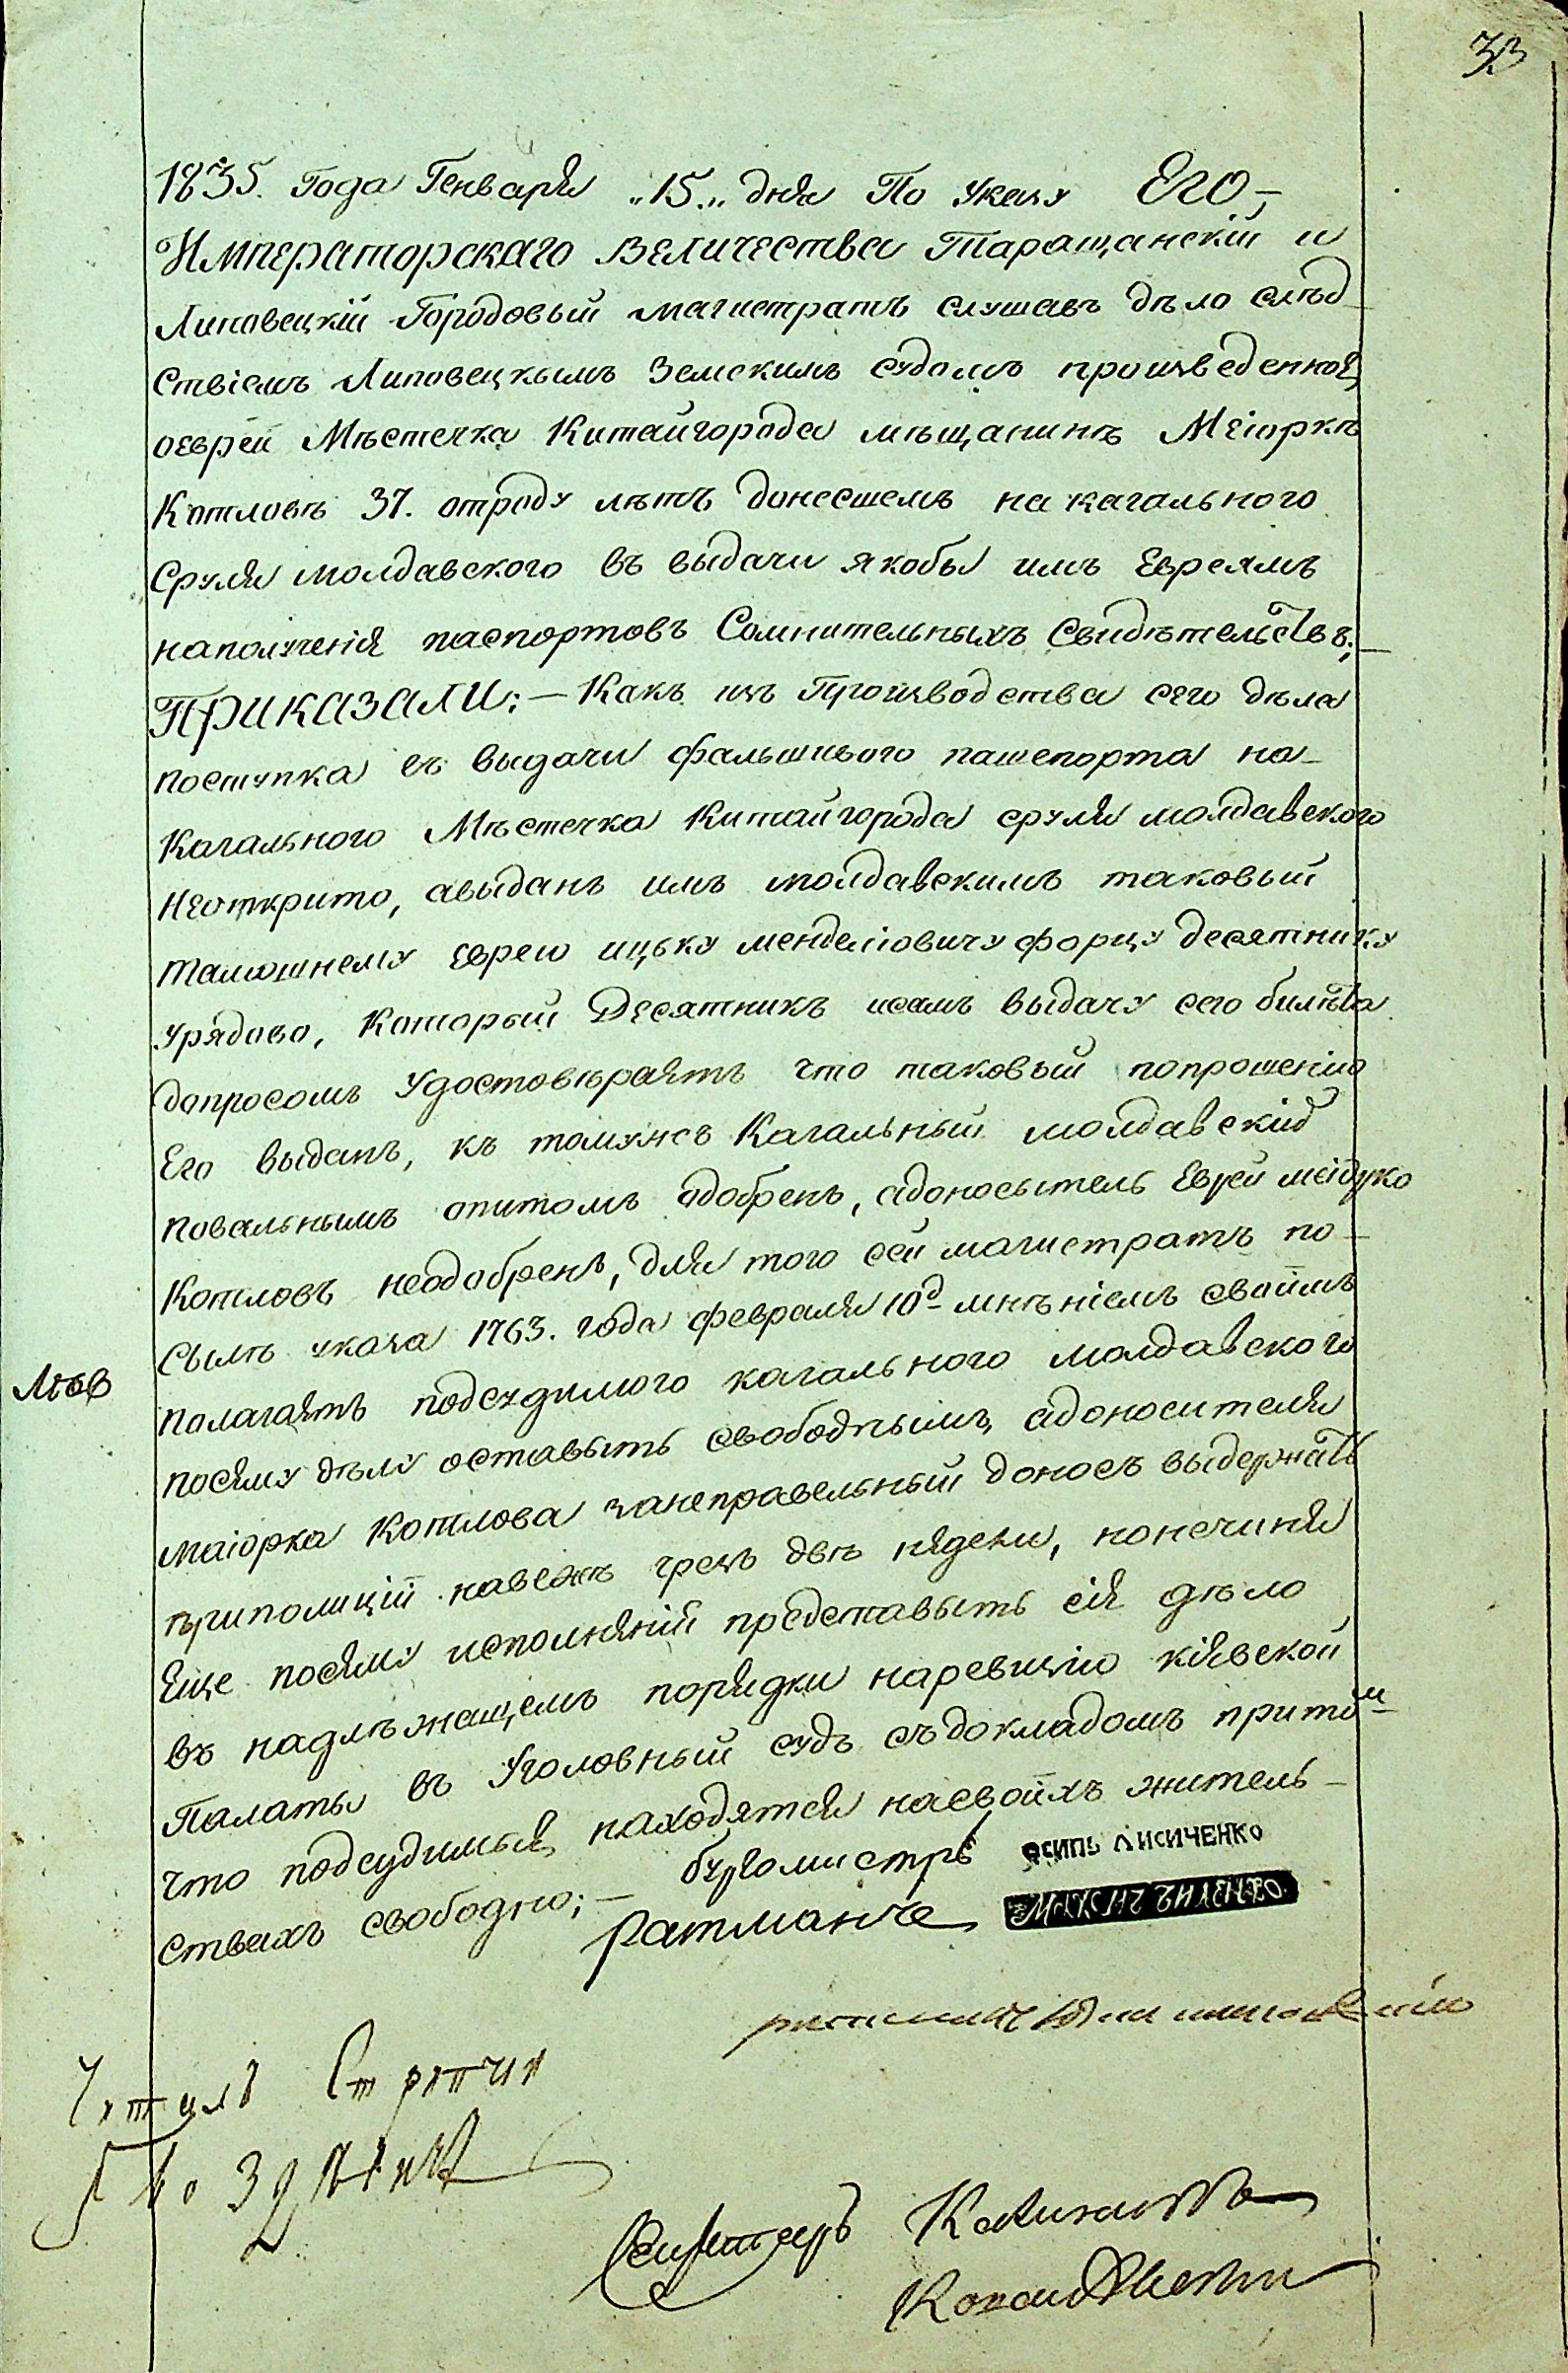 33
1835. Года Генваря „15„ дня По Указу ЕГО–
Императорскаго Величества Таращанскій и
Липовецкій Городовый магистратъ слушавъ дѣло слѣд
ствіемъ Липовецкымъ Земскимъ судомъ произведенноя
оеврѣи Мѣстечка Китайгорода мѣщанинѣ Меіоркѣ
Котловѣ 37. отроду лѣтъ донесшемъ на кагального
Сруля молдавского въ выдачи якобы имъ Евреямъ
наполученія паспортовъ Сомнительныхъ Свидѣтельствъ;–
ПРИКАЗАЛИ:– Какъ изъ Производства сего дѣла
поступка въ выдачи фальшивого пашпорта на–
Кагального Мѣстечка Китайгорода сруля молдавского
неоткрито, авыданъ имъ молдавскимъ таковый
тамошнему еврею ицьку менделіовичу форцу десятнику
урядово, Который Десятникъ исамъ выдачу сего билѣта
допросомъ Удостовѣраятъ что таковый попрошенію
Его выданъ, къ томужъ Кагальный молдавскій
повальнымъ опитомъ одобренъ, адоносытель Еврей
Котловъ неодобренъ, для того сей магистратъ по–
сылѣ указа 1763. года февраля 10д мнѣніемъ своимъ
полагаятъ подсудимого кагального молдавского
посяму дѣлу оставыть свободнымъ, адоносителя
маіорка Котлова занеправельный доносъ выдержать
приполиціи чрезъ двѣ нядели, нонечиня
Еще посяму исполняній прёдставыть сія дѣло
въ надлѣжащемъ порядки наревизію кіявской
Палаты въ Уголовный судъ съдокладомъ притом
что подсудимыя находятся насвоихъ житель–
ствахъ свободно;– бургомистръ ОСИПЪ ЛИСИЧЕНКО
ратманъ
Секретаръ